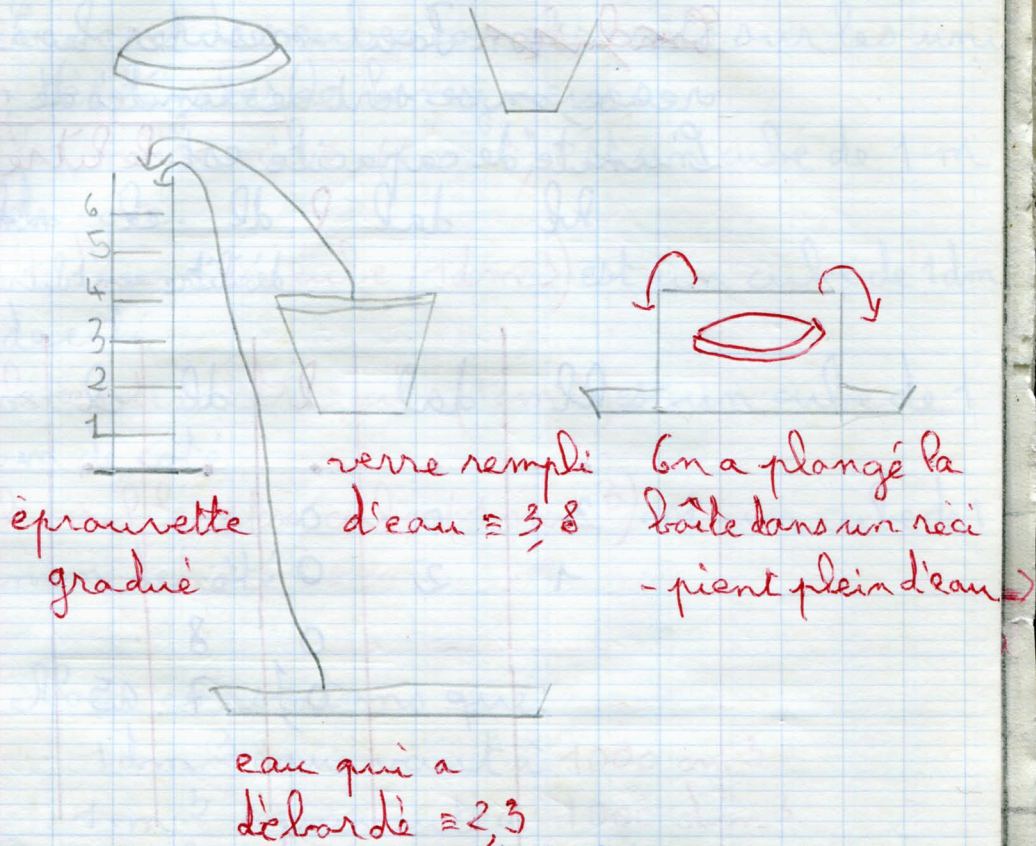 6
5
4
3
2
1
éprouvette
gradué
verre rempli
d'eau ≡ 3,8
On a plongé la
boîte dans un réci
-pient plein d'eau
eau qui a
débordé ≡ 2,3